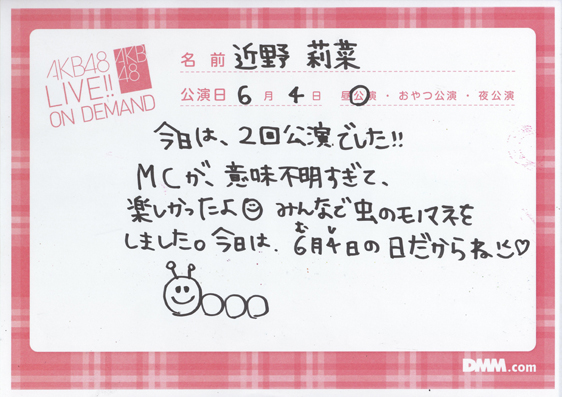 AKB48
LIVE!!
ON DEMAND
AKB
48
名前 近野 莉菜
公演日 6月 4日 昼公演・おやつ公演・夜公演
今日は、2回公演でした!!
MCが、意味不明すぎて、
楽しかったよ みんなで虫のモノマネを
しました。今日は、6月4日の日だからね♡
む し
DMM.com